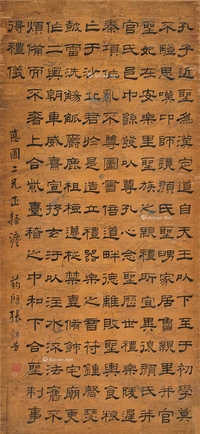 孔子近聖為漢定道自天王以下至于初學莫
不驥思嘆卬師鏡顏氏聖舅家居魯親里并官
聖妃在安樂里聖族之親禮所宜異復顏氏并
官氏邑中繇發以尊孔心念聖歷世禮樂陵遲
秦項作亂不尊圖書倍道畔德離敗聖輿食糧
亡于沙丘君於是造立禮器樂之音符鍾磬瑟
鼓雷洗觴觚爵鹿柤梪籩柉禁壺脩飾宅廟更
作二輿朝車威熹宣抒玄汙以注水流法舊不
煩備而不奢上合紫臺稽之中和下合聖制事
得禮儀
圃二兄正
張